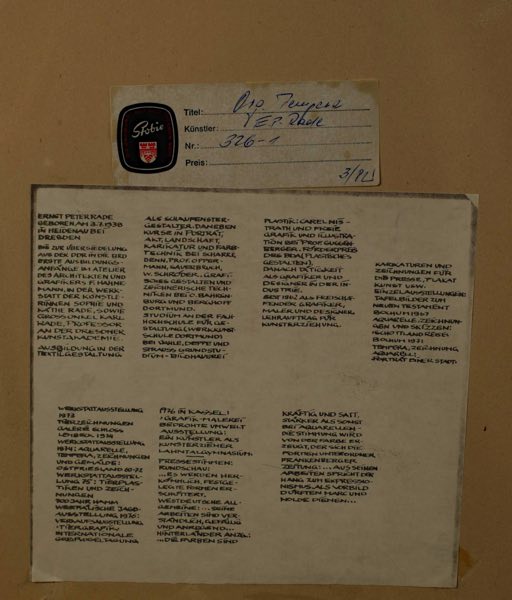 Stobie
Titel: Orig. Tempera
Künstler: E.P. Rade
Nr.: 326-1
Preis:
ERNST PETER RADE
GEBOREN AM 2.7.1938
IN HEIDENAU BEI
DRESDEN
BIS ZUR ÜBERSIEDELUNG
AUS DER DDR IN DIE BRD
ERSTE AUSBILDUNGS-
ANFÄNGE IM ATELIER
DES ARCHITEKTEN UND
GRAFIKERS F. HANNE-
MANN, IN DER WERK-
STATT DER KÜNSTLE-
RINNEN SOPHIE UND
KÄTHE RADE, SOWIE
GROSSONKEL KARL
RADE, PROFESSOR
AN DER DRESDNER
KUNSTAKADEMIE.
AUSBILDUNG IN DER
TEXTILGESTALTUNG
ALS SCHAUFENSTER-
GESTALTER. DANEBEN
KURSE IN PORTRÄT,
AKT, LANDSCHAFT,
KARIKATUR UND FARB-
TECHNIK BEI SCHARRE,
BENN, PROF. OPPER-
MANN, SAUERBRUCH,
W. SCHRÖDER. GRAFI-
SCHES GESTALTEN UND
ZEICHNERISCHE TECH-
NIKEN BEI
UND
DORTMUND.
STUDIUM AN DER FACH-
HOCHSCHULE FÜR GE-
STALTUNG (WERKKUNST-
SCHULE DORTMUND)
BEI
STRAUSS GRUNDSTU-
DIUM - BILDHAUEREI
PLASTIK: CAREL NIS-
TRATH UND FREIE
GRAFIK UND ILLUSTRA-
TION BEI PROF. GUGGEN-
BERGER.
(PLASTISCHES
GESTALTEN).
DANACH TÄTIGKEIT
ALS GRAFIKER UND
DESIGNER IN DER IN-
DUSTRIE.
SEIT 1967 ALS FREISCHAF-
FENDER GRAFIKER,
MALER UND DESIGNER.
LEHRAUFTRAG FÜR
KUNSTERZIEHUNG.
KARIKATUREN UND
ZEICHNUNGEN FÜR
DIE PRESSE, PLAKAT
KUNST USW.
EINZELAUSSTELLUNGEN:
TAFELBILDER ZUM
NEUEN TESTAMENT
BOCHUM 1967
AQUARELLE, ZEICHNUN-
GEN UND SKIZZEN:
SCHOTTLANDREISE:
BOCHUM 1971:
TEMPERA, ZEICHNUNG,
AQUARELL:
PORTRÄT EINER STADT:
WERKSTATTAUSSTELLUNG
1973
TIERZEICHNUNGEN
GALERIE SCHLOSS
1974
WERKSTATTAUSSTELLUNG
1974: AQUARELLE,
TEMPERA, ZEICHNUNGEN
UND GEMÄLDE:
OSTFRIESLAND
WERKSTATTAUSSTEL-
LUNG 75: TIERPLAS-
TIKEN UND ZEICH-
NUNGEN
WESTFÄLISCHE JAGD-
AUSSTELLUNG, 1976:
VERKAUFSAUSSTELLUNG
TIERGRAFIK
INTERNATIONALE
GREIFVOGELTAGUNG
1976 IN KASSEL:
GRAFIK - MALEREI
BEDROHTE UMWELT
AUSSTELLUNG:
EIN KÜNSTLER ALS
KUNSTERZIEHER
LAHNTALGYMNASIUM.
PRESSESTIMEN:
RUNDSCHAU:
...ES WERDEN HER-
KÖMMLICH FESTGE-
LEGTE FORMEN ER-
SCHÜTTERT.
WESTDEUTSCHE ALL-
GEMEINE: ... SEINE
ARBEITEN SIND VER-
STÄNDLICH, GEFÄLLIG
UND ANREGEND...
HINTERLÄNDER ANZ.:
... DIE FARBEN SIND
KRÄFTIG UND SATT,
STÄRKER ALS SONST
BEI AQUARELLEN
DIE STIMMUNG WIRD
VON DER FARBE ER-
ZEUGT, DER SICH DIE
FORMEN UNTERORDNEN.
FRANKENBERGER
ZEITUNG: ... AUS SEINEN
ARBEITEN SPRICHT DER
HANG ZUM EXPRESSIO-
NISMUS, ALS VORBILD
DÜRFTEN MARC UND
NOLDE DIENEN...